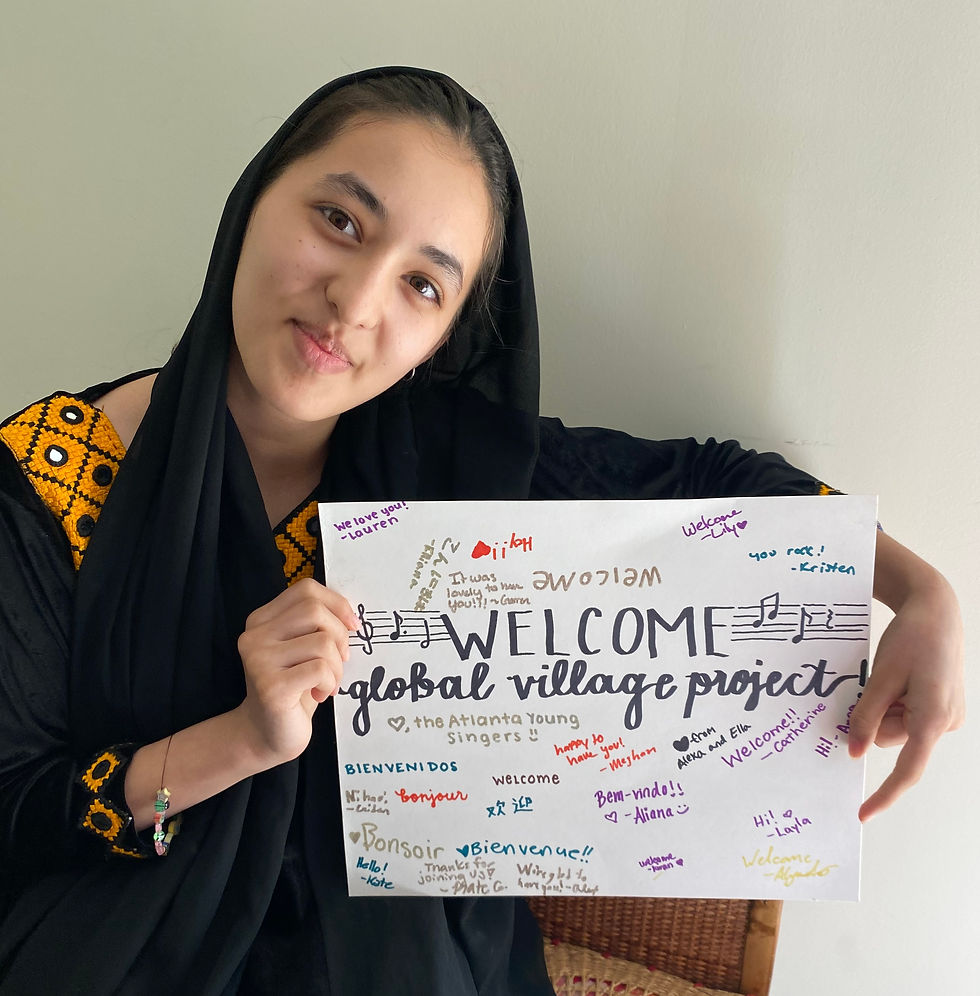 We love you!
- Lauren
Welcome
-Lily
Hayiii
you rock!
-Kristen
It was
lovely to have
you!!!
WELCOME
WELCOME
global village project!
, the Atlanta Young
Singers !!
happy to
have you!
- Meghan
from
Alexa and Ella
Welcome!!
- Catherine
Hi! - Anna
BIENVENIDOS
welcome
Ni hao!
Bonjour
欢迎
Bem-vindo!!
- Aliana
Hi!
- Layla
Bonsoir
Bienvenue!!
Hello!
- Kate
Thanks for
joining us!
We're glad to
have you!
welcome
Welcome